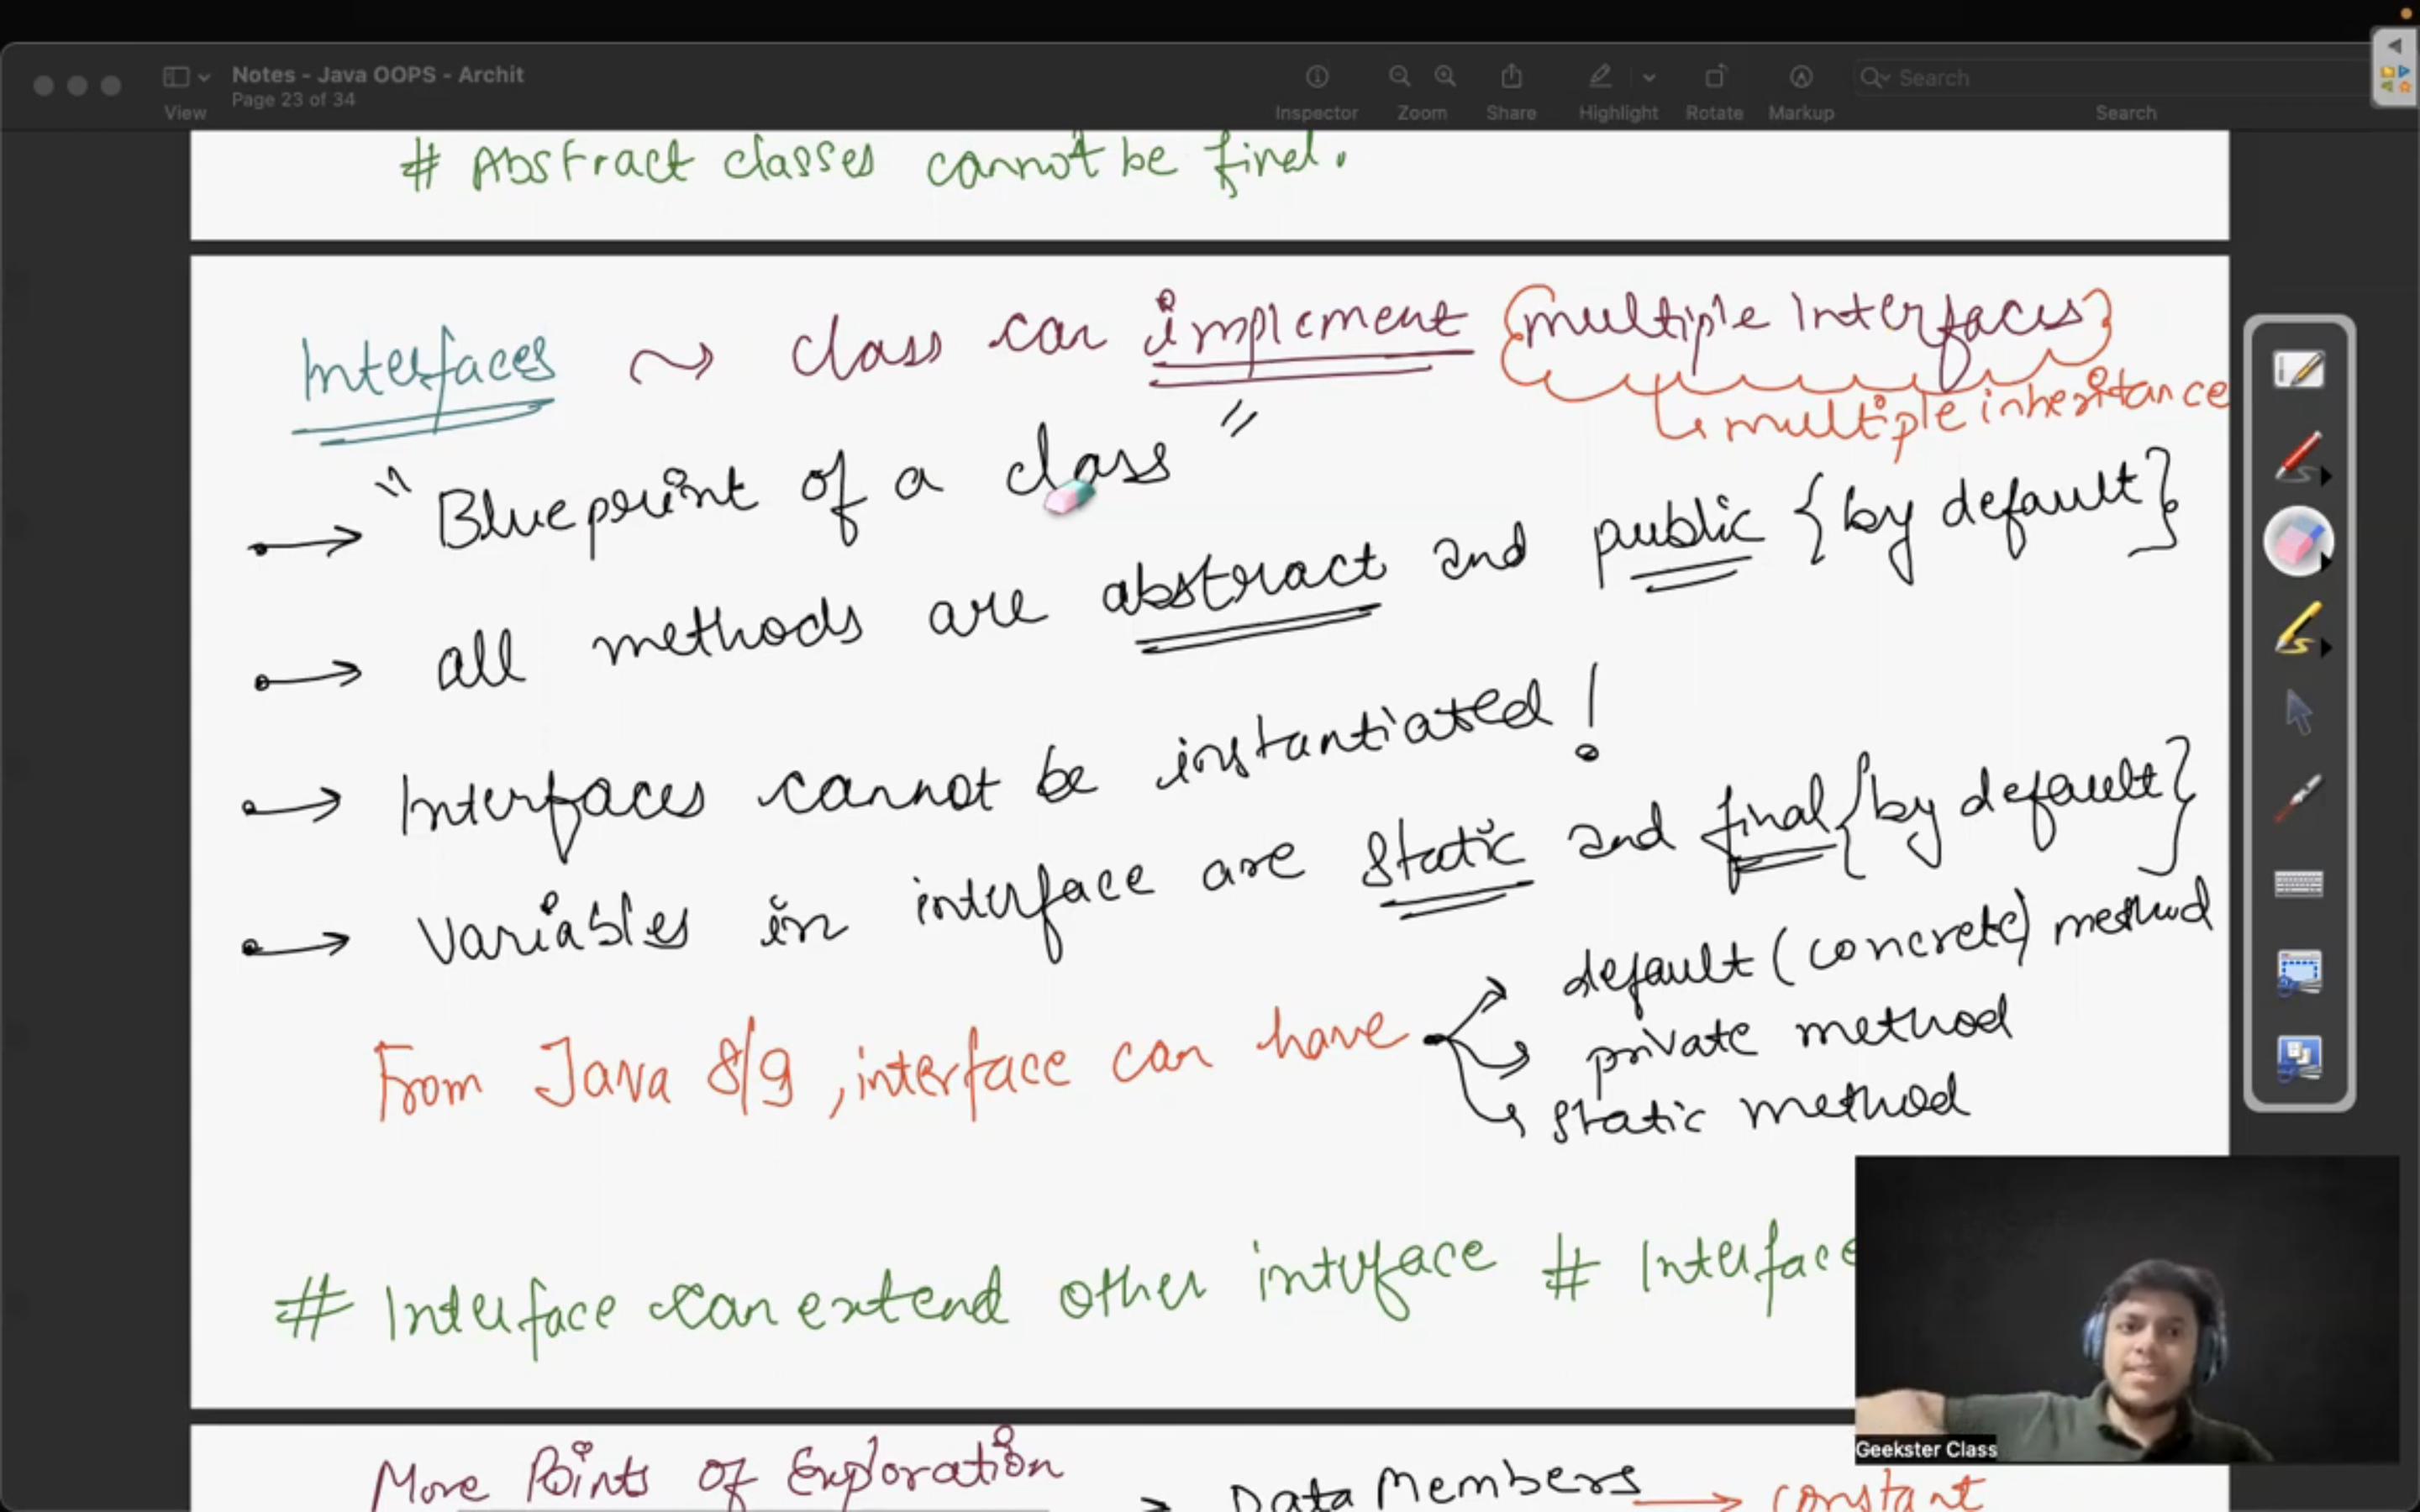 Notes - Java OOPS - Archit
Page 23 of 34
View
Inspector
Zoom
Share
Highlight
Rotate
Markup
Search
Search
# Abstract classes cannot be final.
Interfaces class can implement {multiple Interfaces}
multiple inheritance
"Blueprint of a class"
all methods are abstract and public {by default}
Interfaces cannot be instantiated!
Variables in interface are static and final {by default}
From Java 8/9, interface can have
default (concrete) method
private method
static method
# Interface can extend other interface # Interface
Geekster Class
More Points Of Exploration
Data Members → constant